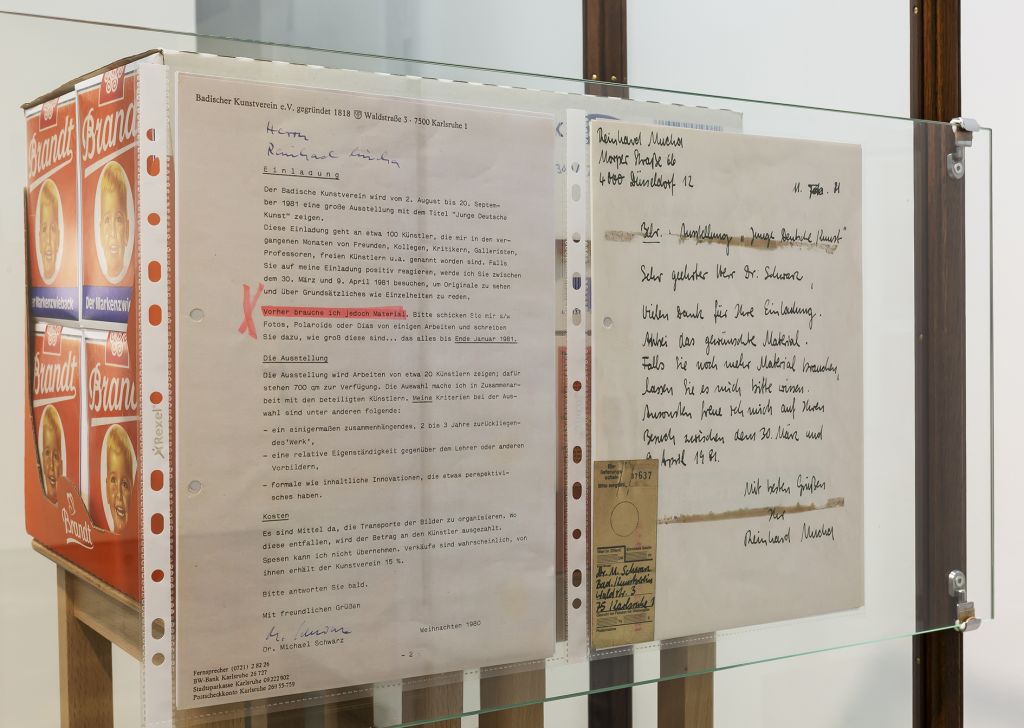 Brandt
Brandt
der Markenzwieback
Der Markenzwieb
Brandt
Brandt
Brandt
Rexel
Badischer Kunstverein e.V. gegründet 1818 Waldstraße 3 · 7500 Karlsruhe 1
Herrn
Reinhard Mucha
Einladung
Der Badische Kunstverein wird vom 2. August bis 20. Septem-
ber 1981 eine große Ausstellung mit dem Titel "Junge Deutsche
Kunst" zeigen.
Diese Einladung geht an etwa 100 Künstler, die mir in den ver-
gangenen Monaten von Freunden, Kollegen, Kritikern, Galleristen,
Professoren, freien Künstlern u.a. genannt worden sind. Falls
Sie auf meine Einladung positiv reagieren, werde ich Sie zwischen
dem 30. März und 9. April 1981 besuchen, um Originale zu sehen
und über Grundsätzliches wie Einzelheiten zu reden.
X
Vorher brauche ich jedoch Material. Bitte schicken Sie mir s/w
Fotos, Polaroids oder Dias von einigen Arbeiten und schreiben
Sie dazu, wie groß diese sind... das alles bis Ende Januar 1981.
Die Ausstellung
Die Ausstellung wird Arbeiten von etwa 20 Künstlern zeigen; dafür
stehen 700 qm zur Verfügung. Die Auswahl mache ich in Zusammenar-
beit mit den beteiligten Künstlern. Meine Kriterien bei der Aus-
wahl sind unter anderen folgende:
- ein einigermaßen zusammenhängendes, 2 bis 3 Jahre zurückliegen-
des'Werk',
- eine relative Eigenständigkeit gegenüber dem Lehrer oder anderen
Vorbildern,
- formale wie inhaltliche Innovationen, die etwas perspektivi-
sches haben.
Kosten
Es sind Mittel da, die Transporte der Bilder zu organisieren. Wo
diese entfallen, wird der Betrag an den Künstler ausgezahlt.
Spesen kann ich nicht übernehmen. Verkäufe sind wahrscheinlich, von
ihnen erhält der Kunstverein 15 %.
Bitte antworten Sie bald.
Mit freundlichen Grüßen
M. Schwarz
Dr. Michael Schwarz
Weihnachten 1980
- 2 -
Fernsprecher (0721) 2 82 26
BW-Bank Karlsruhe 26 727
Stadtsparkasse Karlsruhe 09222 902
Postscheckkonto Karlsruhe 269 55-759
Reinhard Mucha
Morper Straße 66
4000 Düsseldorf 12
11. 81
Betr. Ausstellung "Junge Deutsche Kunst"
Sehr geehrter Herr Dr. Schwarz,
Vielen Dank für Ihre Einladung.
Anbei das gewünschte Material.
Falls Sie noch mehr Material brauchen,
lassen Sie es mich bitte wissen.
Ansonsten freue ich mich auf Ihren
Besuch zwischen dem 30. März und
9. April 1981.
Mit besten Grüßen
Ihr
Reinhard Mucha
Ein-
lieferungs-
schein
637
Dr. M. Schwarz
Bad. Kunstverein
Waldstr. 3
75 Karlsruhe 1